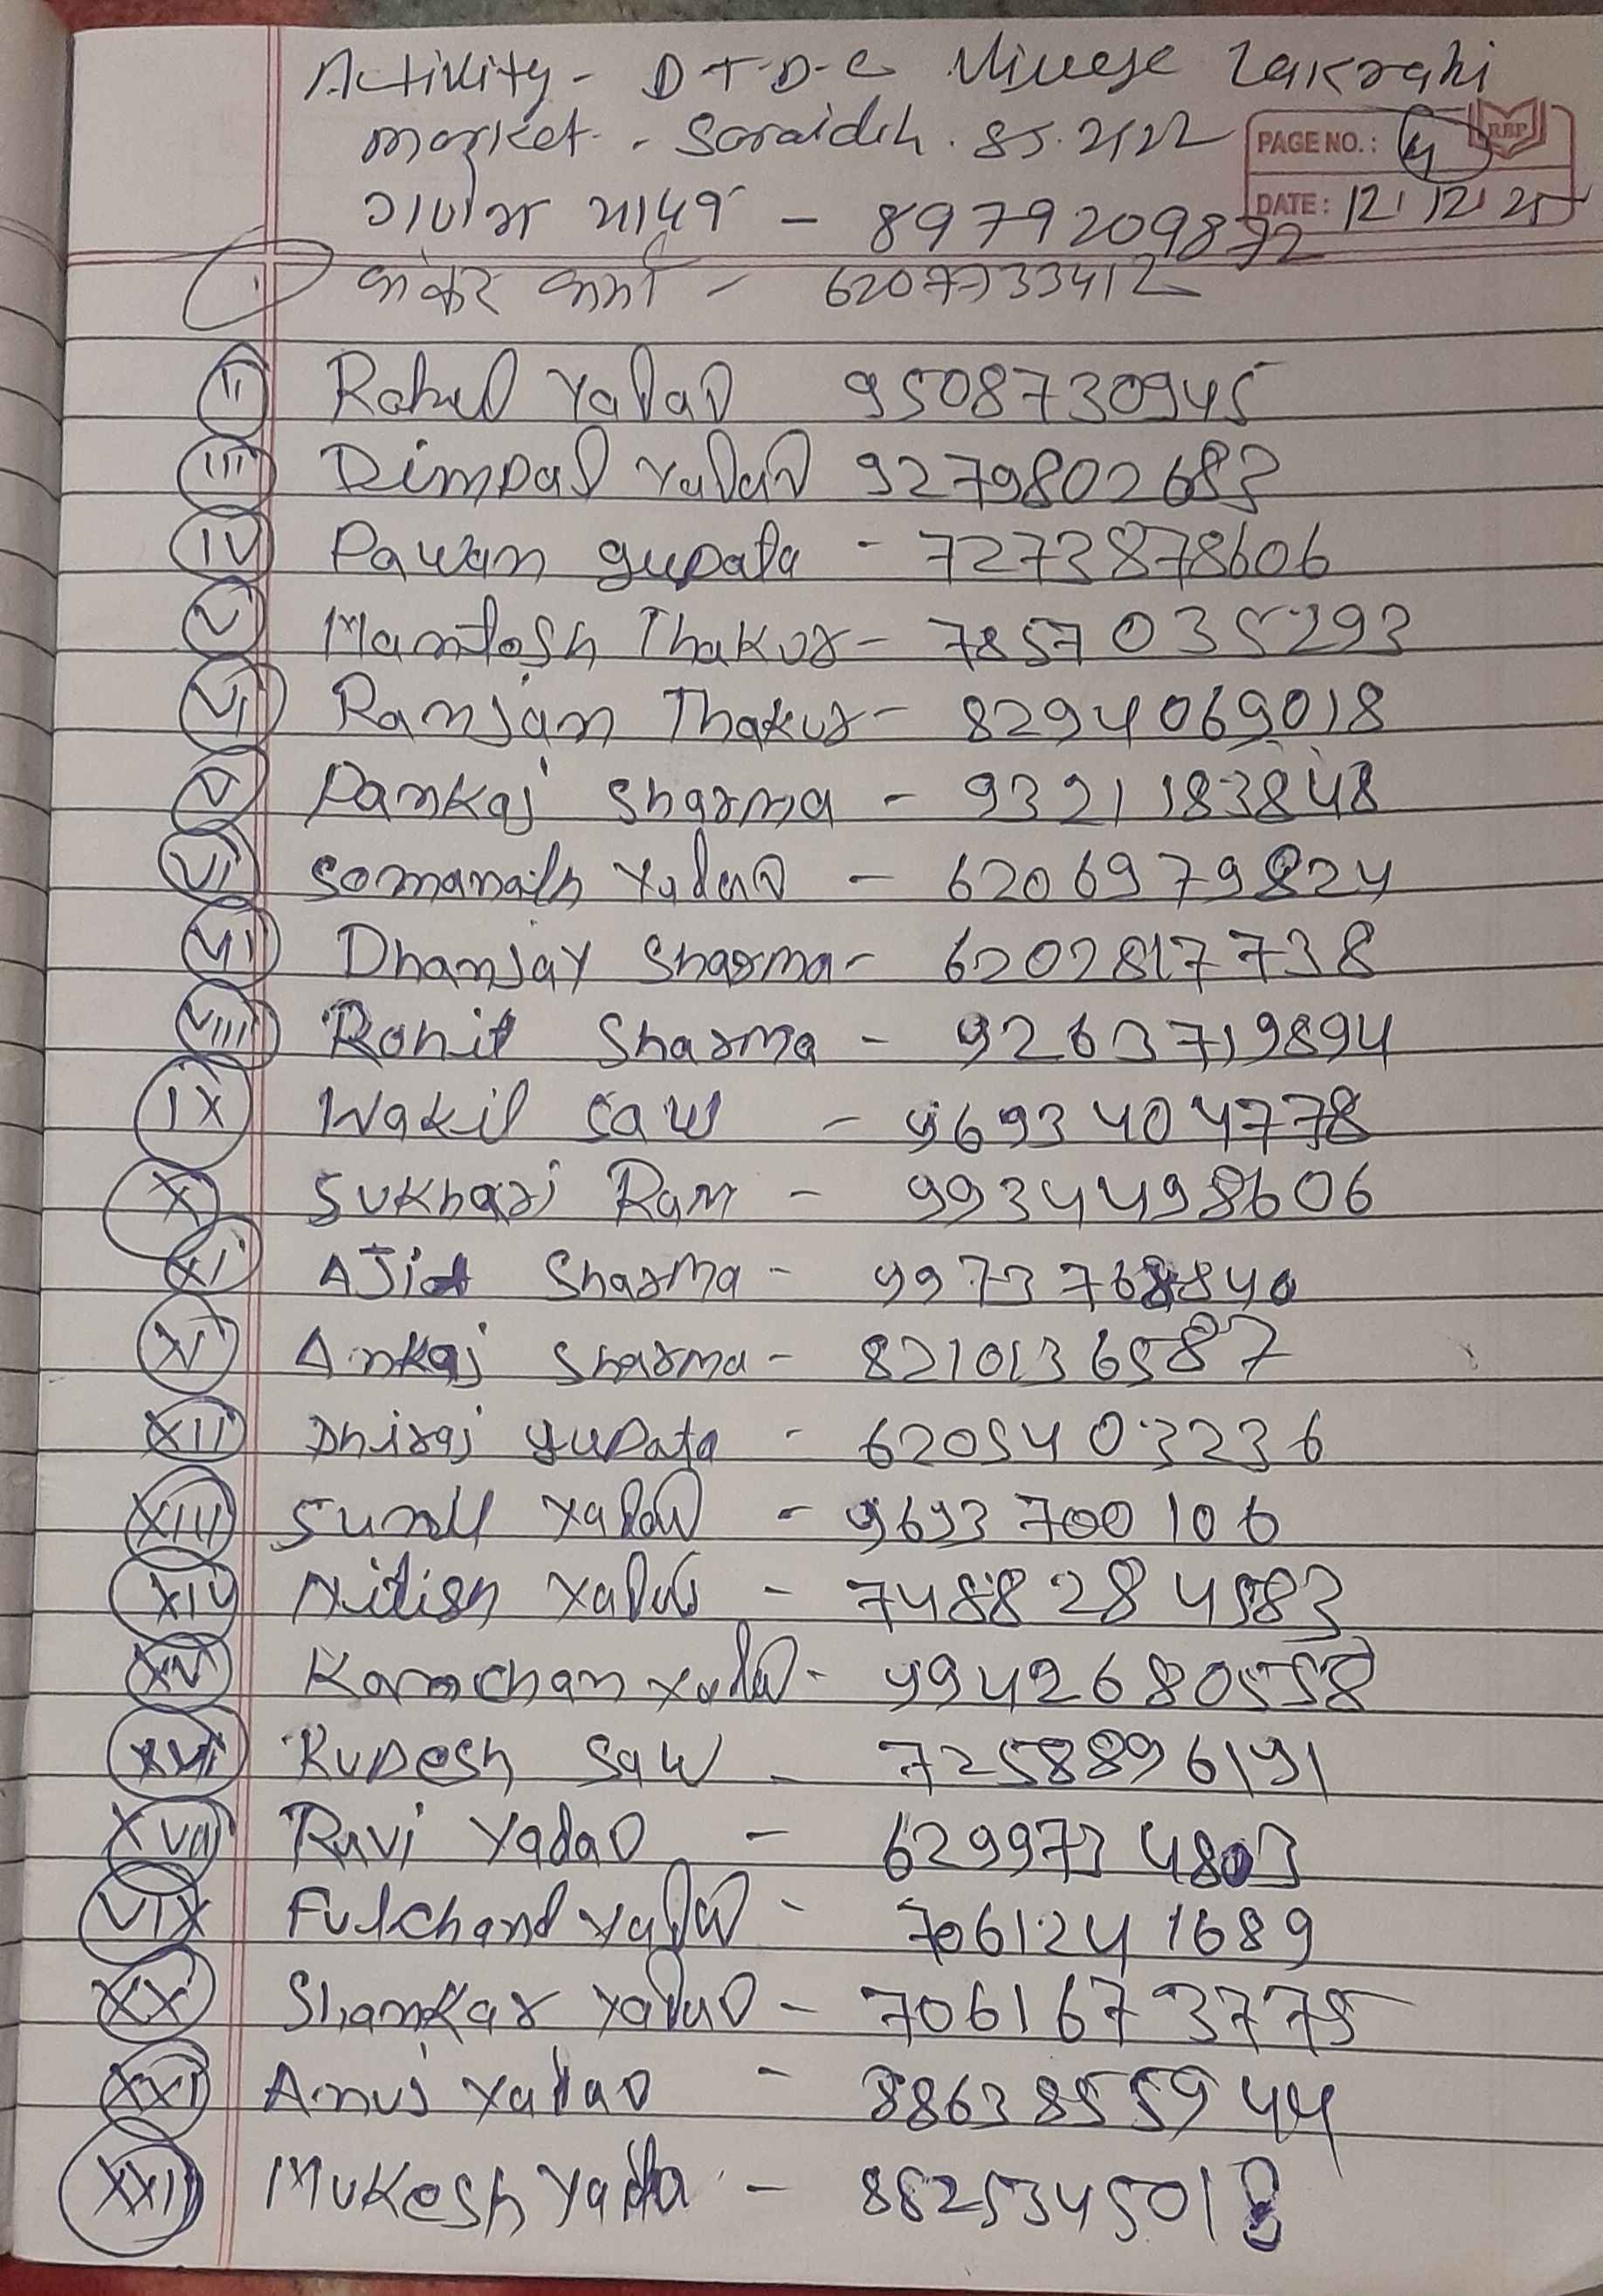 Activity - D-T-D-C Village Lakrahi
market - Soraidih . 85.2122
RBP
PAGE NO.: 4
DATE: 12/12/25
- 8979209872
शंकर शर्मा - 6207733412
ii Rahul Yadav 9508730945
iii Dimpal Yadav 9279802683
iv Pawan gupata - 7273878606
v Mamtosh Thakur - 7857035293
vi Ramjam Thakur - 8294069018
v Pankaj Sharma - 9321183848
vi Somanath Yadav - 6206979824
vii Dhamjay Sharma - 6202817738
viii Rohit Sharma - 9263719894
ix Wakil Saw - 9693404778
x Sukhari Ram - 9934498606
xi Ajit Sharma - 9973768840
xi Ankaj Sharma - 8210136587
xii Dhiraj gupata - 6205403236
xiii Sunil Yadav - 9693700106
xiv Nitish Yadav - 7488284583
xv Karmchan Yadav - 9942680558
xvii Rupesh Saw - 7258896191
xvii Ravi Yadav - 6299734803
VIX Fulchand Yadav - 7061241689
xx Shamkar Yadav - 7061673775
xxi Anuj Yadav - 8863855944
xxii Mukesh Yada - 8825345018